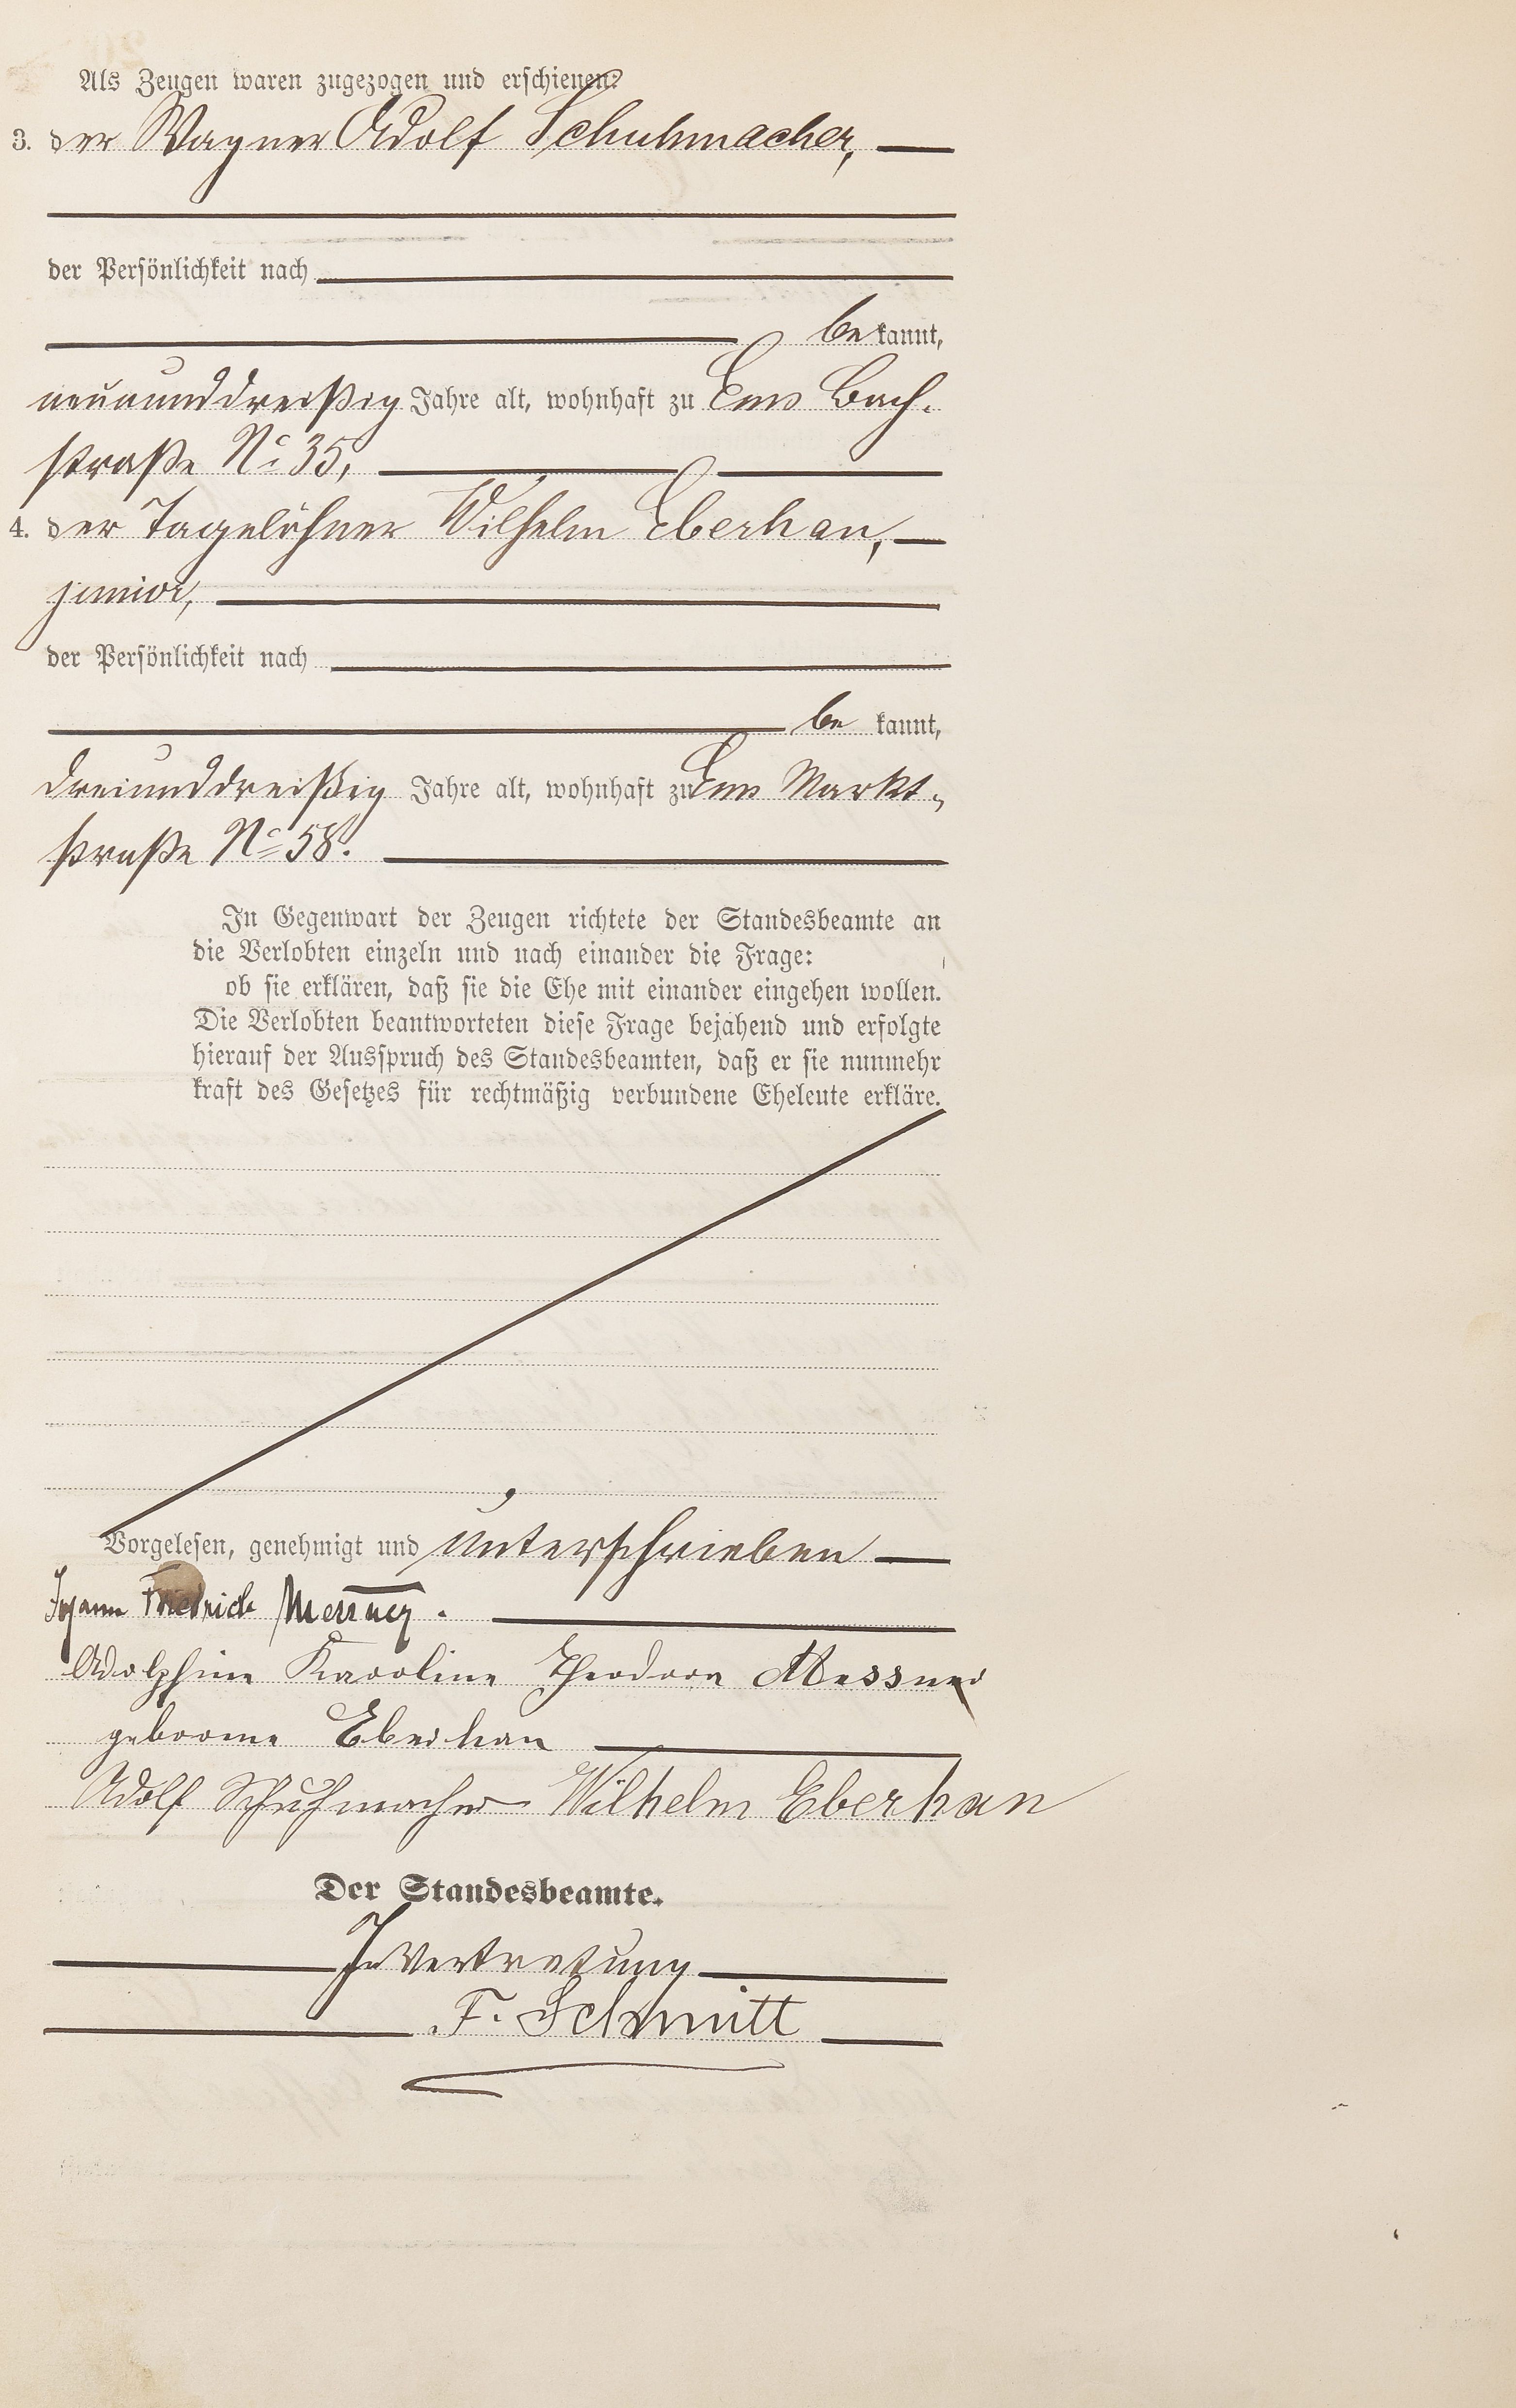 Als Zeugen waren zugezogen und erschienen:
3. der Wagner Adolf Schuhmacher,
der Persönlichkeit nach
be kannt,
neununddreißig Jahre alt, wohnhaft zu Ems Bach-
straße No 35,
4. der Tagelöhner Wilhelm Eberhan,
junior,
der Persönlichkeit nach
be kannt,
dreiunddreißig Jahre alt, wohnhaft zu Ems Markt-
straße No 58.
In Gegenwart der Zeugen richtete der Standesbeamte an
die Verlobten einzeln und nach einander die Frage:
ob sie erklären, daß sie die Ehe mit einander eingehen wollen.
Die Verlobten beantworteten diese Frage bejahend und erfolgte
hierauf der Ausspruch des Standesbeamten, daß er sie nunmehr
kraft des Gesetzes für rechtmäßig verbundene Eheleute erkläre.
Vorgelesen, genehmigt und unterschrieben
Johann Friedrich Messner.
Adolphine Karoline Theodora Messner
geborene Eberhan
Adolf Schuhmacher Wilhelm Eberhan
Der Standesbeamte.
In Vertretung
F. Schmitt